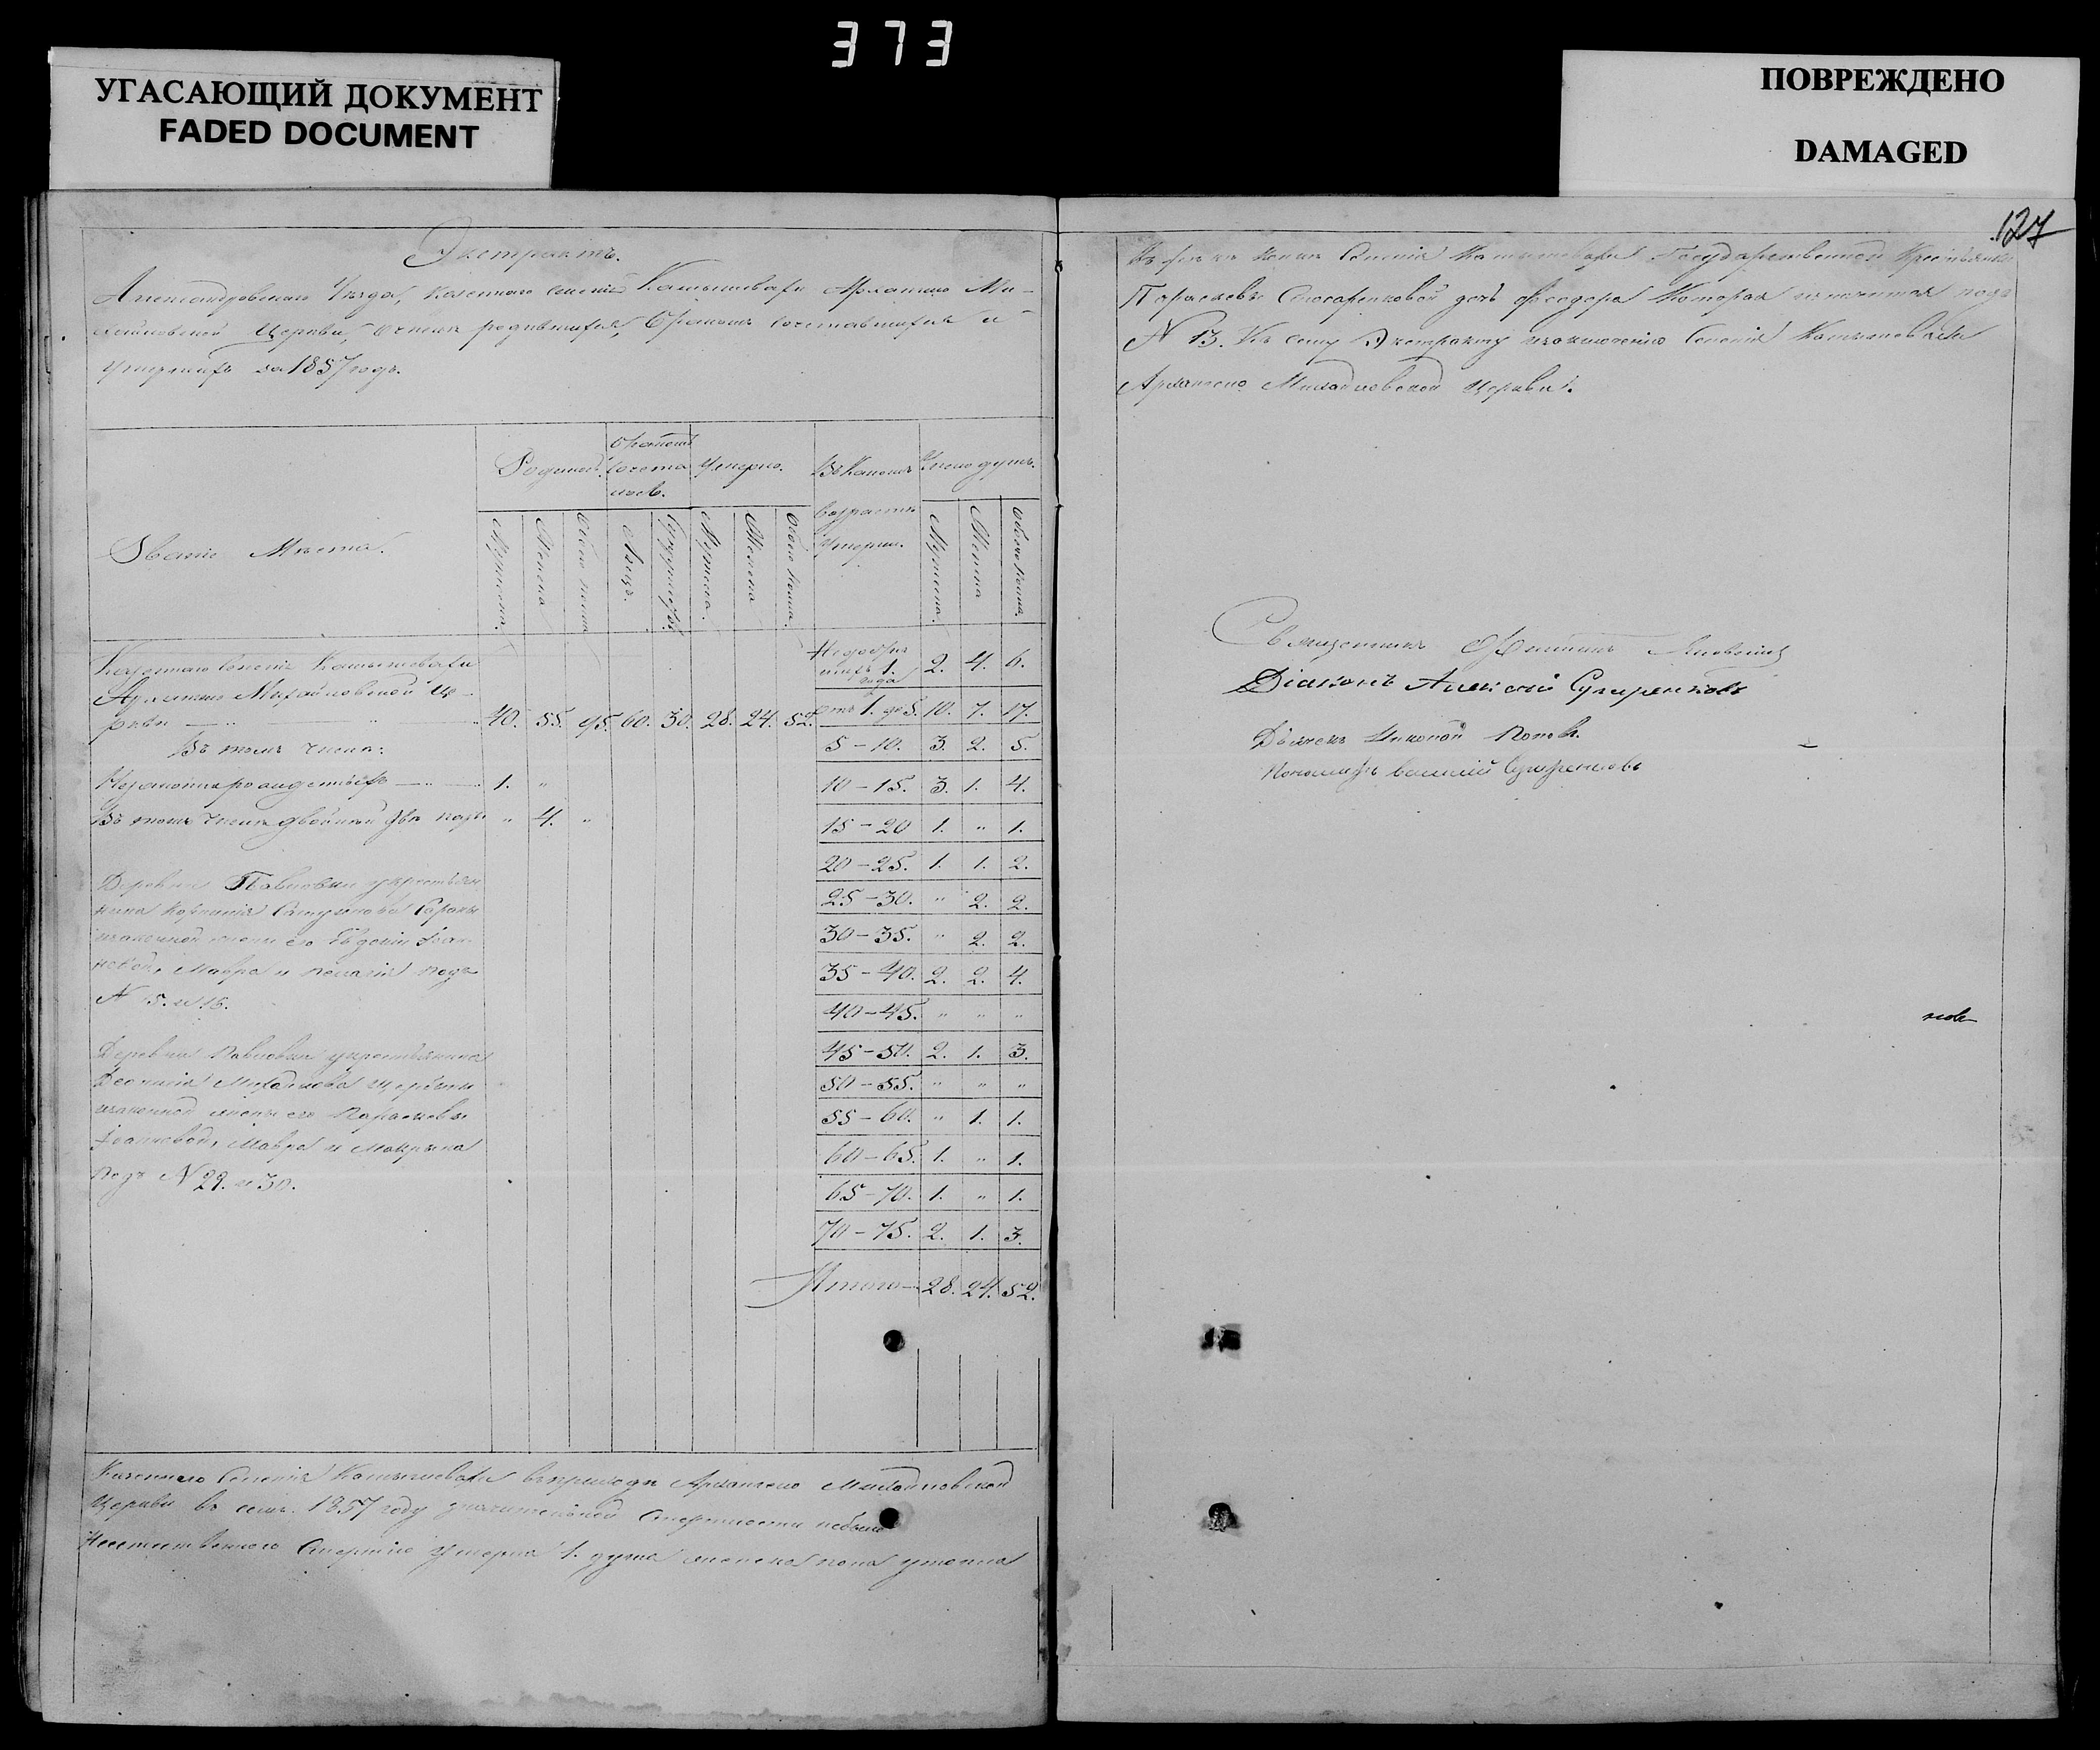 373
УГАСАЮЩИЙ ДОКУМЕНТ
FADED DOCUMENT
ПОВРЕЖДЕНО
DAMAGED
127
Экстрактъ.
Александровскаго Уѣзда, казеннаго селенія Камышевахи Архангело Ми-
хайловской Церкви, о числѣ родившихся, бракомъ сочетавшихся и
умершихъ за 1857 годъ.
Званіе Мѣста.
Родилось.
бракомъ сочета лось.
Умерло.
Въ какомъ возрастѣ умерли.
Число душъ.
Мужеска.
Женска
Обоего пола
Лицъ.
Супружествъ.
Мужеска.
Женска
Обоего пола.
Мужеска.
Женска
Обоего пола.
Казеннаго селенія Камышевахи
Архангело Михайловской Це-
ркви 40. 55. 95. 60. 30. 28. 24. 52.
Въ томъ числѣ:
Незаконнорожденныхъ 1. "
Въ томъ числѣ двойни двѣ " 4. "
Деревни Павловки у крестьян
нина
законной жены его Евдокіи Іоан-
новой, Мавра и Пелагія подъ
N 15. и 16.
Деревни Павловки у крестьянина
Михайлова
законной жены его Параскевы
Іоанновой, Мавра и Макрына
подъ N 29. и 30.
Недообря
шихъ 1. года 2. 4. 6.
отъ 1. до 5. 10. 7. 17.
5 – 10. 3. 2. 5.
10 – 15. 3. 1. 4.
15 – 20 1. " 1.
20 – 25. 1. 1. 2.
25 – 30. " 2. 2.
30 – 35. " 2. 2.
35 – 40. 2. 2. 4.
40 – 45. " " "
45 – 50. 2. 1. 3.
50 – 55. " " "
55 – 60. " 1. 1.
60 – 65. 1. " 1.
65 – 70. 1. " 1.
70 – 75. 2. 1. 3.
Итого – 28. 24. 52.
Казеннаго Селенія Камышевахи въ приходѣ Архангело Михайловской
Церкви въ семъ 1857 году значительной смертности не было
Неестественною смертію умерла 1. душа женска пола утопла
въ рѣкѣ Селенія Камышевахи Государственной Крестьянки
Параскевы Слюсаренковой дочь Феодора которая значится подъ
N 13. Къ сему Экстракту Селенія Камышевахи
Архангело Михайловской Церкви.
Священникъ
Діаконъ Алексій
Дьячекъ Николай Поповъ.
Пономарь Василій